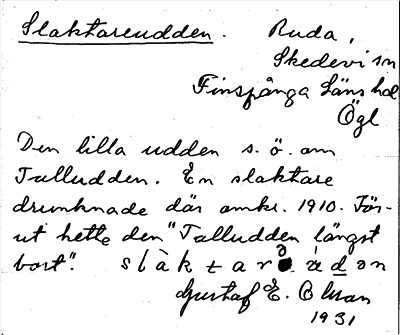 Slaktareudden. Ruda,
Skedevi sn
Finspånga läns hd
Ögl
Den lilla udden s.ö. om
Talludden. En slaktare
drunknade där omkr. 1910. För-
ut hette den "Talludden längst
bort".
Gustaf E. Olson
1931